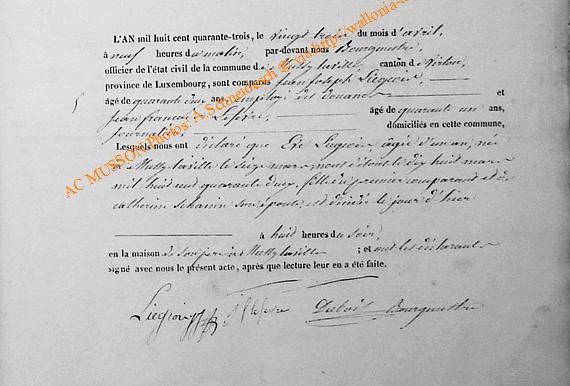 L'AN mil huit cent quarante-trois, le vingt trois du mois d'avril,
à neuf heures du matin, par-devant nous Bourgmestre,
officier de l'état civil de la commune de Mussy la ville, canton de Virton,
province de Luxembourg, sont comparus Jean Joseph
âgé de quarante ans, employé des douanes et
jean françois Lefevre, âgé de quarante un ans,
journalier, domiciliés en cette commune,
Lesquels nous ont déclaré que âgée d'un an, née
à Mussy la ville le mars dix huit mars
mil huit cent quarante deux, fille du premier comparant et de
catherine son épouse, est décédée le jour d'hier
à huit heures du soir,
en la maison de son père à Mussy la ville ; et ont les déclarants
signé avec nous le présent acte, après que lecture leur en a été faite.
Lefevre Bourgmestre
AC MUSSON Photos: A.Schneidesch @ via http://www.wallonia-